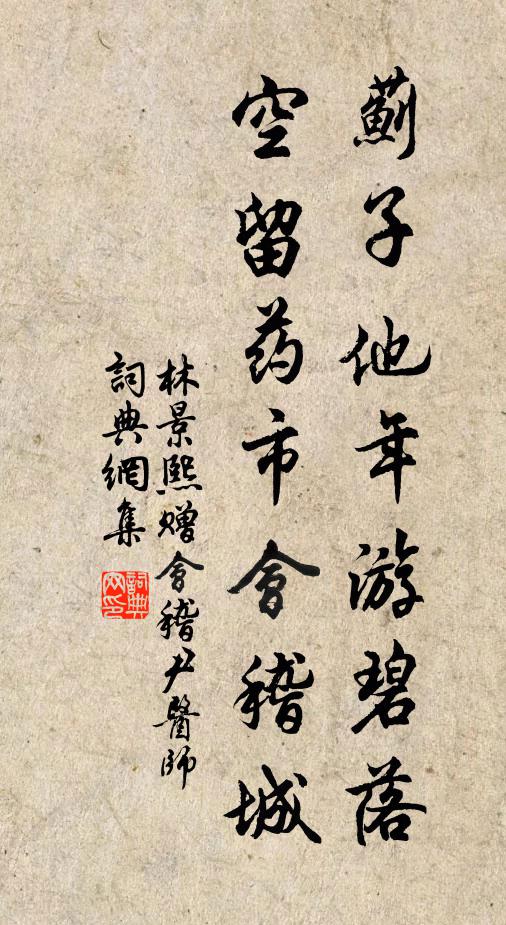 薊子他年游碧落
空留药市會稽城
林景熙赠會稽尹醫師
詞典網集
詞典
网印